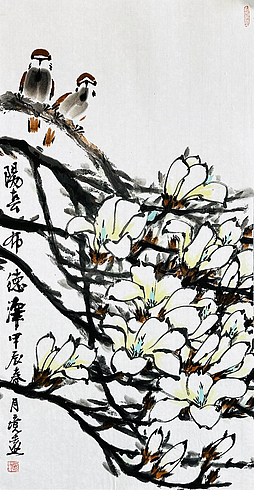 陽春布德澤甲辰春月境藝